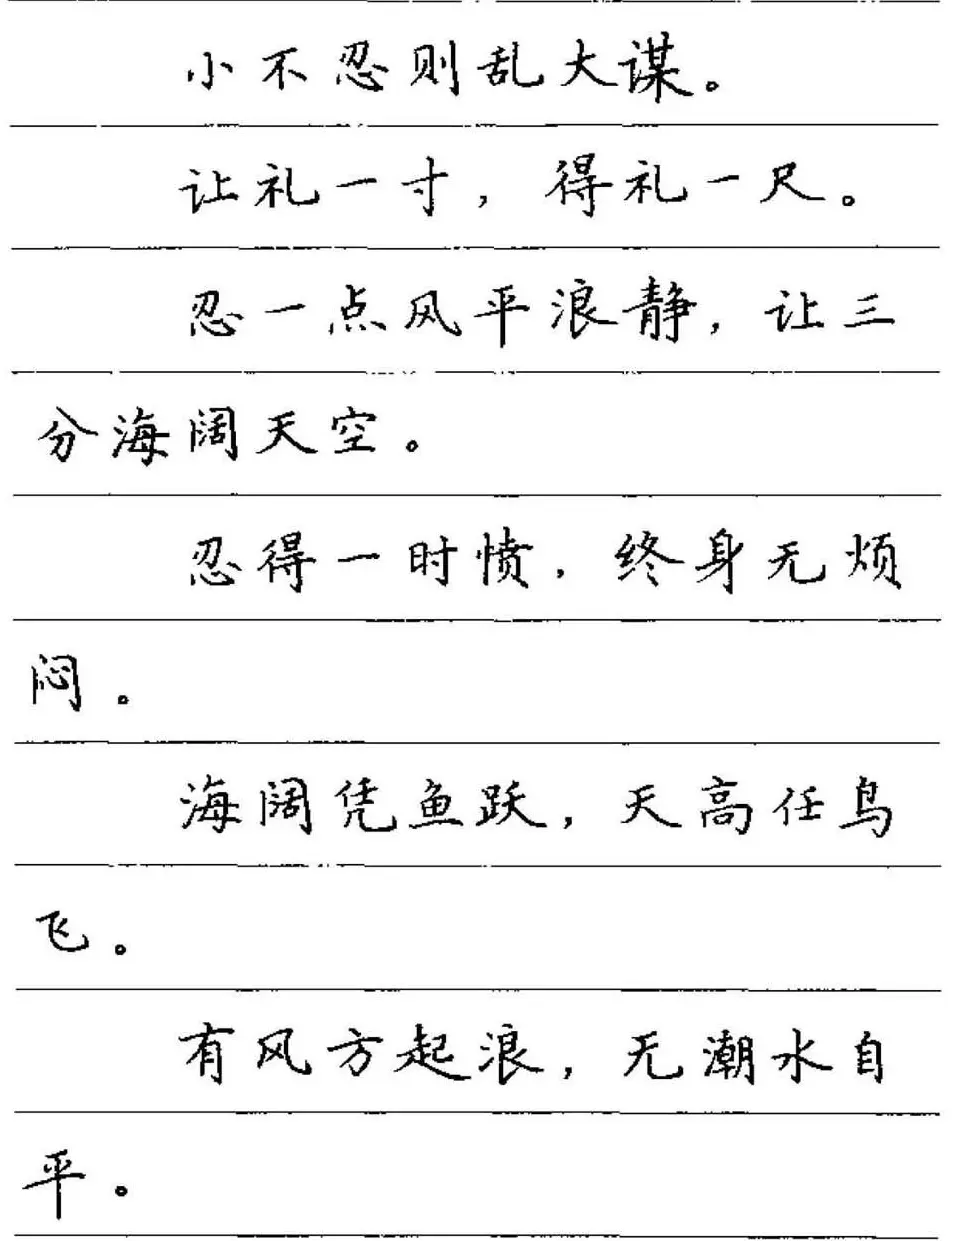 小不忍则乱大谋。
让礼一寸，得礼一尺。
忍一点风平浪静，让三
分海阔天空。
忍得一时愤，终身无烦
闷。
海阔凭鱼跃，天高任鸟
飞。
有风方起浪，无潮水自
平。